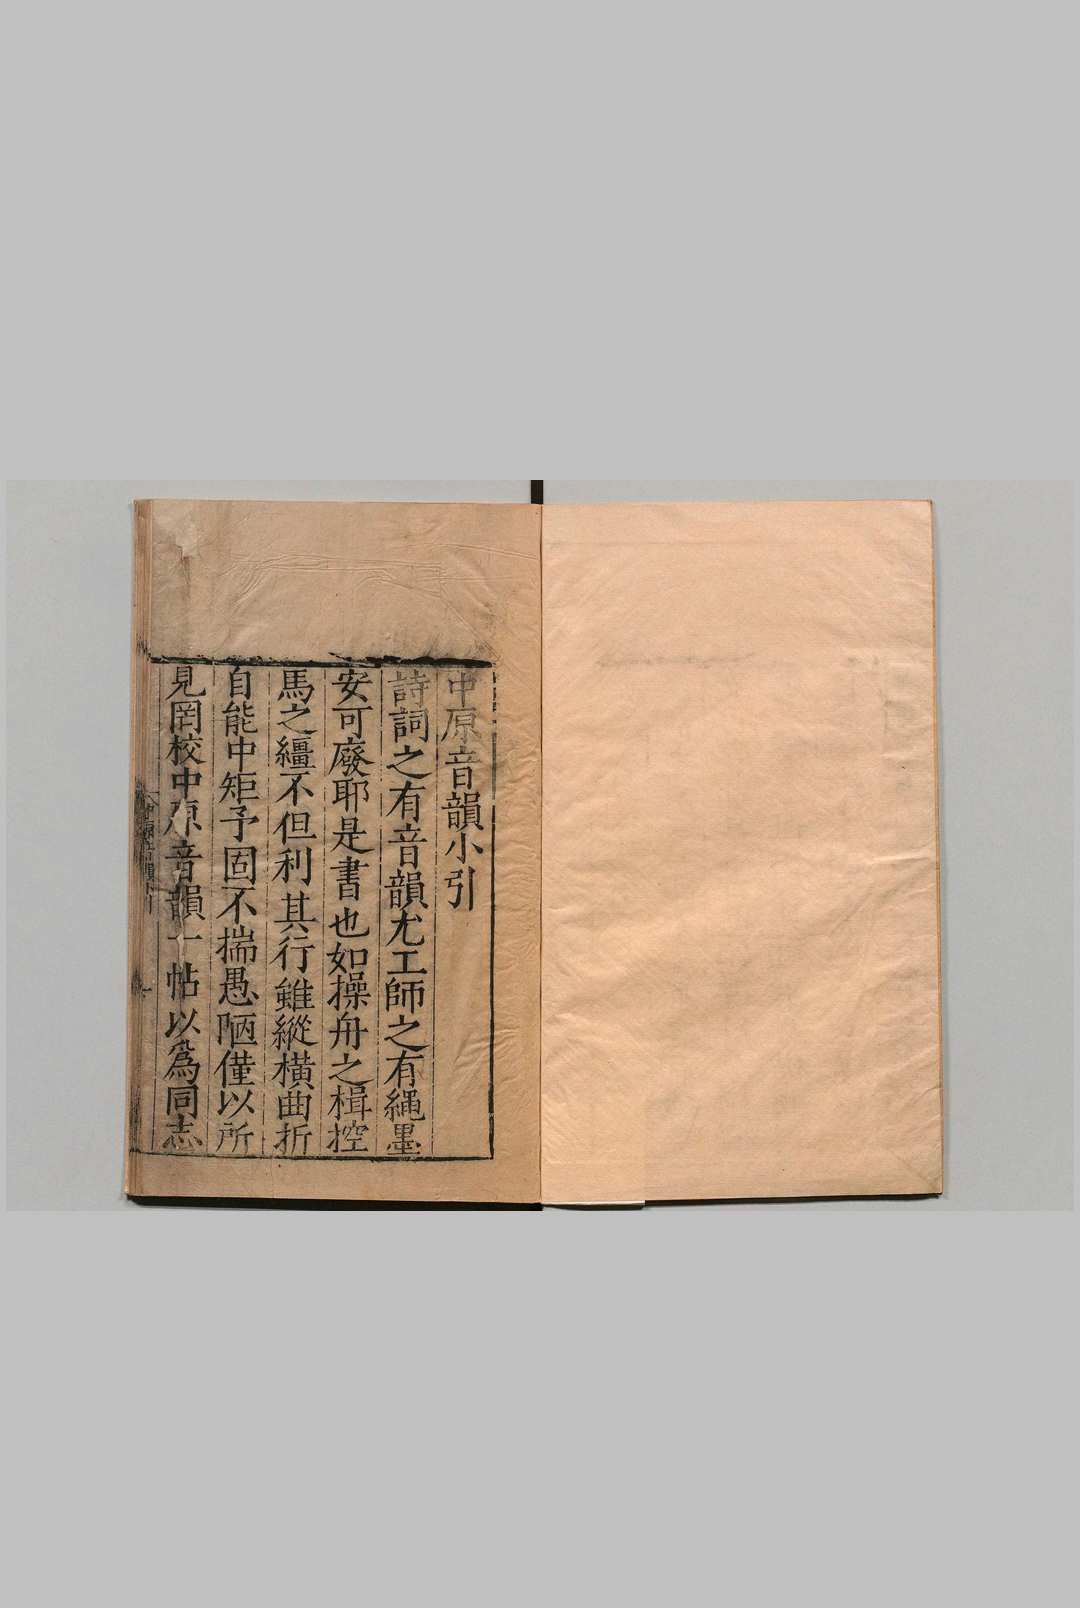 中原音韻小引
詩詞之有音韻尤工師之有繩墨
安可廢耶是書也如操舟之楫控
馬之繮不但利其行雖縱橫曲折
自能中矩予固不揣愚陋僅以所
見罔校中原音韻一帖以爲同志